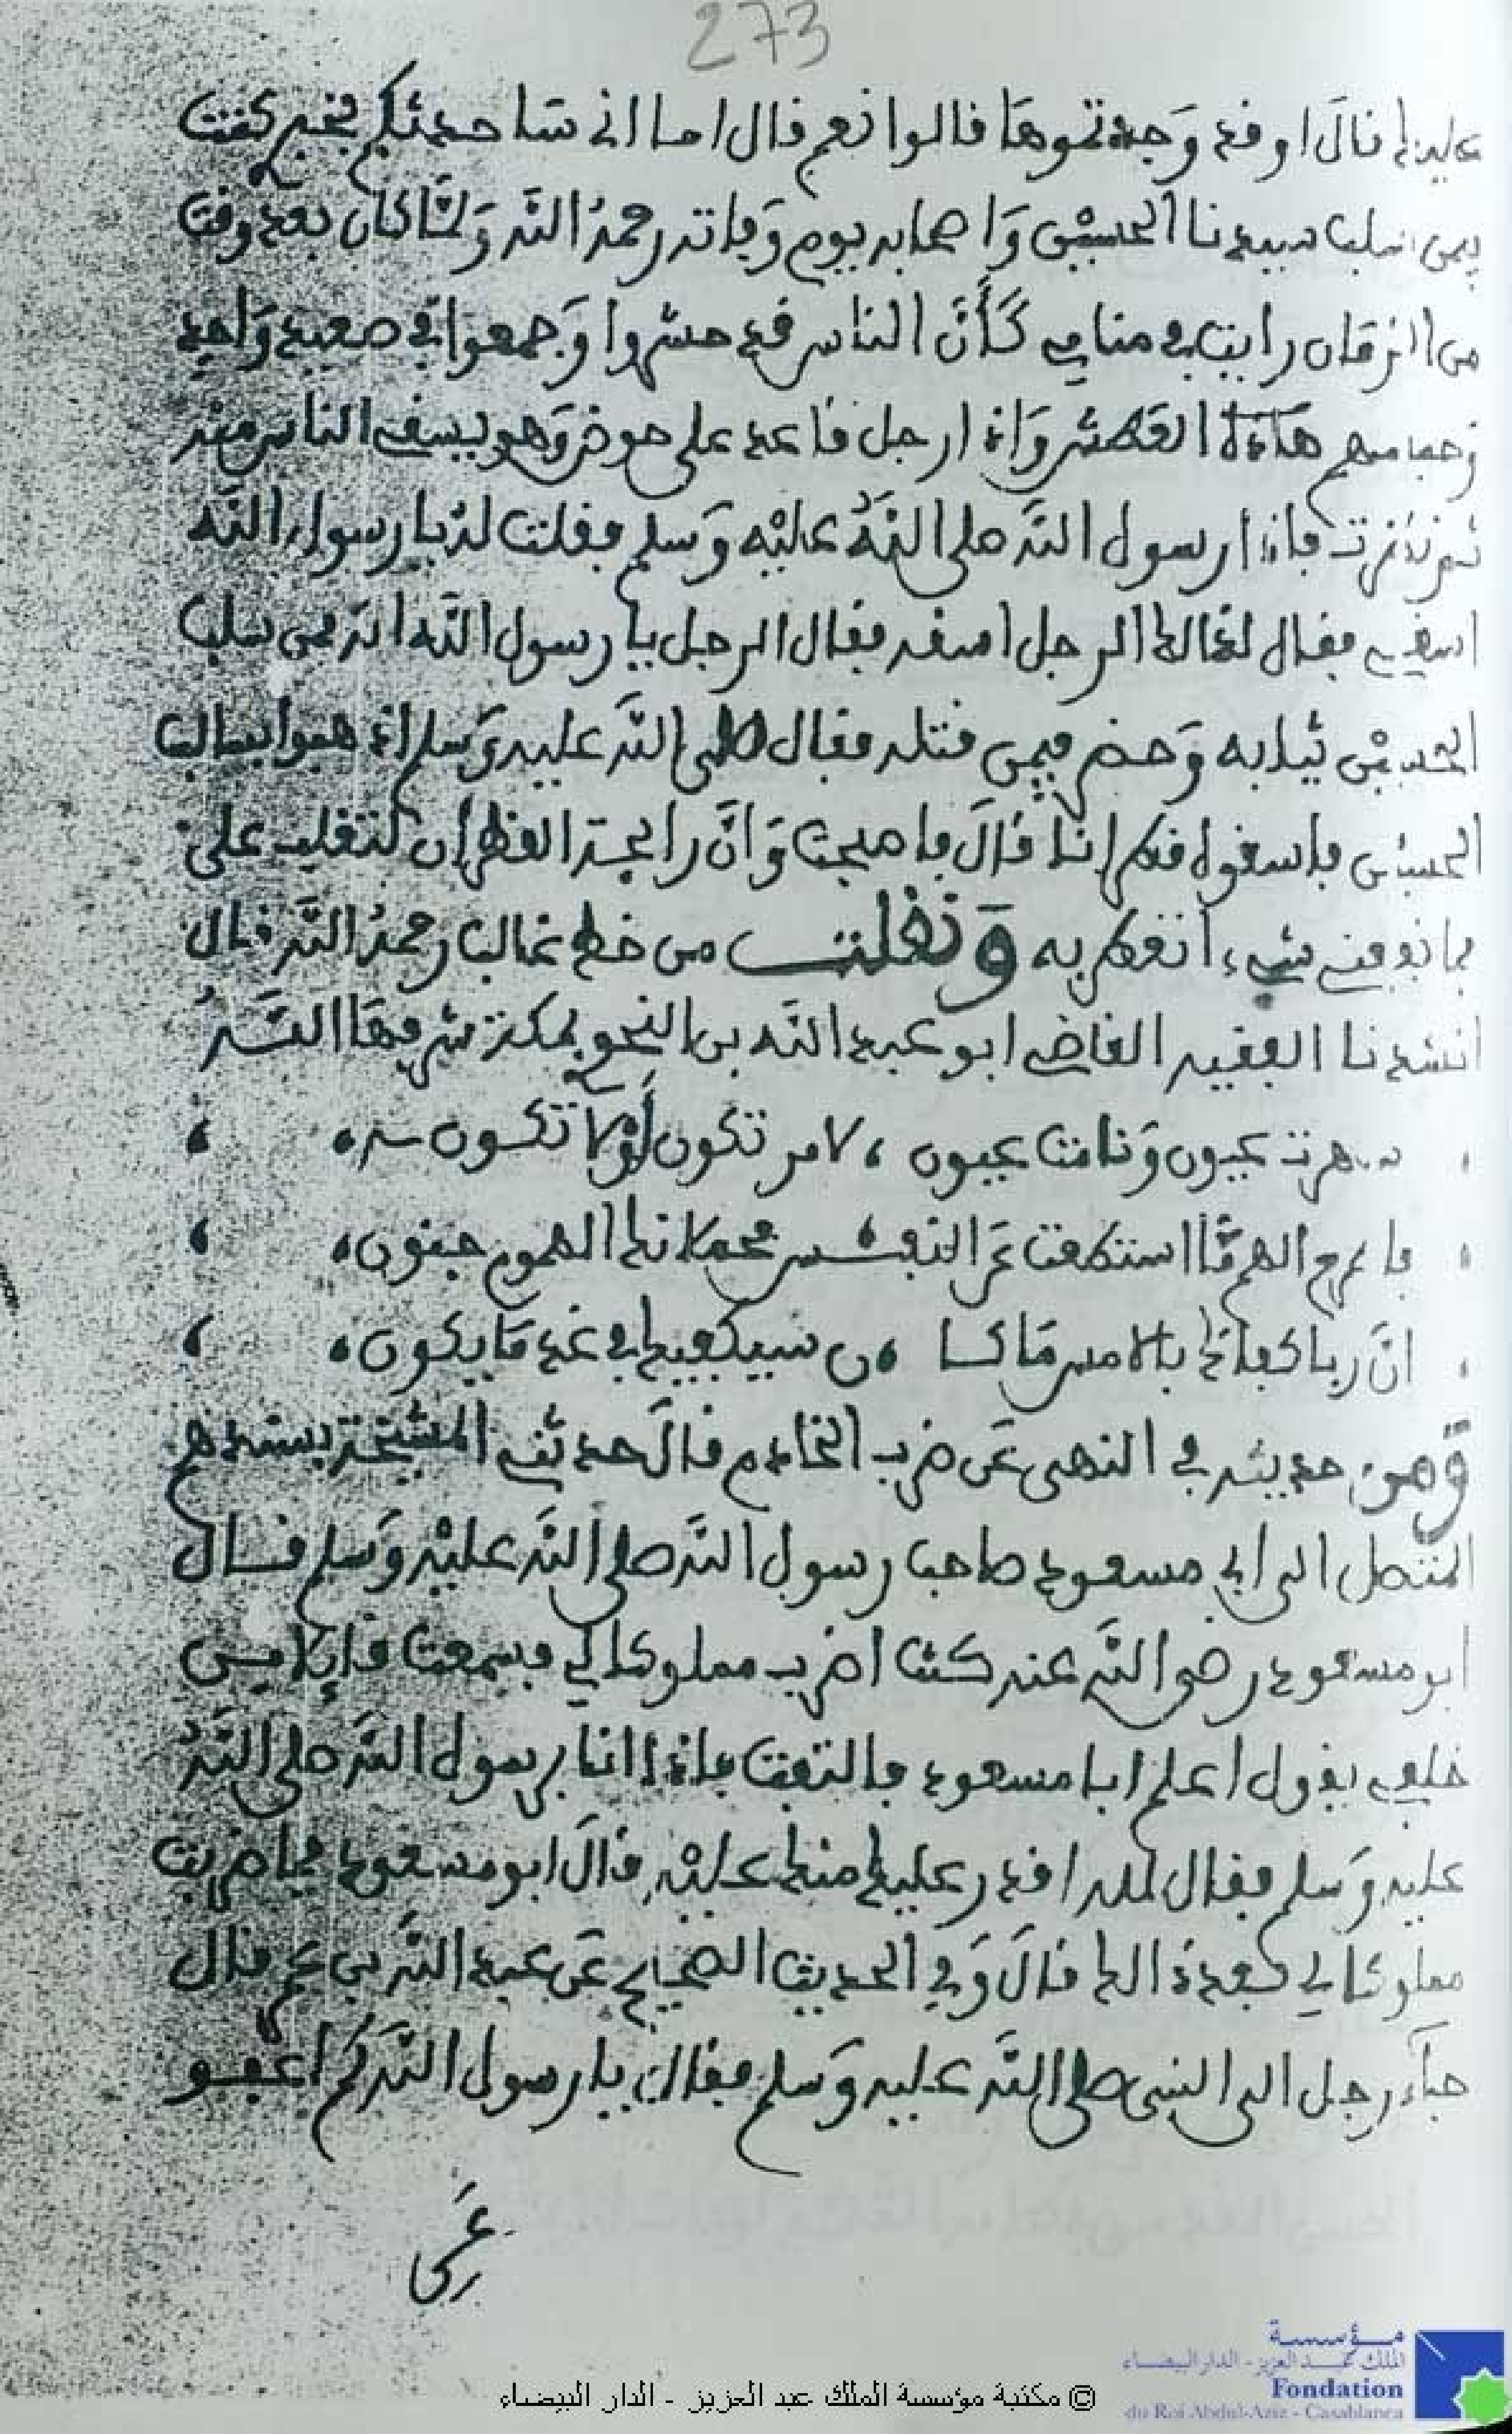 273
عليه قال اوقد وجدتموها قالوا نعم قال اما اني ساحدثكم بخبر كنت
فيمن سلب سيدنا الحسين وَاصحابه يوم وَفاته رحمهُ الله وَلمَّا كان بعد وقت
من الزمان رايت في منامي كَأَنَّ الناس قد حشروا وَجمعوا في صعيد وَاحد
هَاذا العَطش وَاذا رجل قاعد على حوض وَهو يسقى الناس منه
ثم نظرت فاذا رسول الله صلى اللهُ عليْه وَسلم فقلت لهُ يا رسول الله
اسقني فقال لذالك الرجل اسقه فقال الرجل يا رسول الله انه ممن سلب
الحسيْن ثيابه وَحضر فيمن قتله فقال صلى الله عليه وَسلم اذهبوا بسالب
الحسين فاسقوه قطرانا قالَ فاصبحت وَانَّ رايحة القطران لتغلب على
فما نوفى شيء اتعطر به وَنقلت من خط غالب رحمهُ الله قال
انشدنا الفقيه القاضي ابو عبد الله بن النحو بمكة شرفها اللـهُ
سهرت عيون وَنامت عيون ، لامر تكون أوْ لا تكون
فاطرح الهم مَّا استطعت عَن النفـس فحملانك الهموم جنون،
انَّ ربا كفاك بالامس مَا كـا ، ن سيكفيك في غد مَا يكون،
وَمن حديثه في النهى عَن ضرب الخادم قالَ حدثني المشيخة بسندهم
المتصل الى ابي مسعود صاحب رسول الله صلى الله عليْه وَسلم قال
ابو مسعود رضى الله عنه كنت اضرب مملوكا لي فسمعت قايلا من
خلفي يقول اعلم ابا مسعود فالتفت فاذا انا برسول الله صلى اللهُ
عليه وَسلم فقال لله اقدر عليك منك عليْه قالَ ابو مسعود فما ضربت
مملوكا لي بعد ذالك قالَ وَفي الحديث الصحيح عَن عبد الله بن عمر قال
جاَء رجل الى النبي صلى الله عليه وَسلم فقال يا رسول الله كم اعفـو
عَن
© مكتبة مؤسسة الملك عبد العزيز - الدار البيضاء
مؤسسة
الملك عبد العزيز - الدار البيضاء
Fondation
du Roi Abdul-Aziz - Casablanca